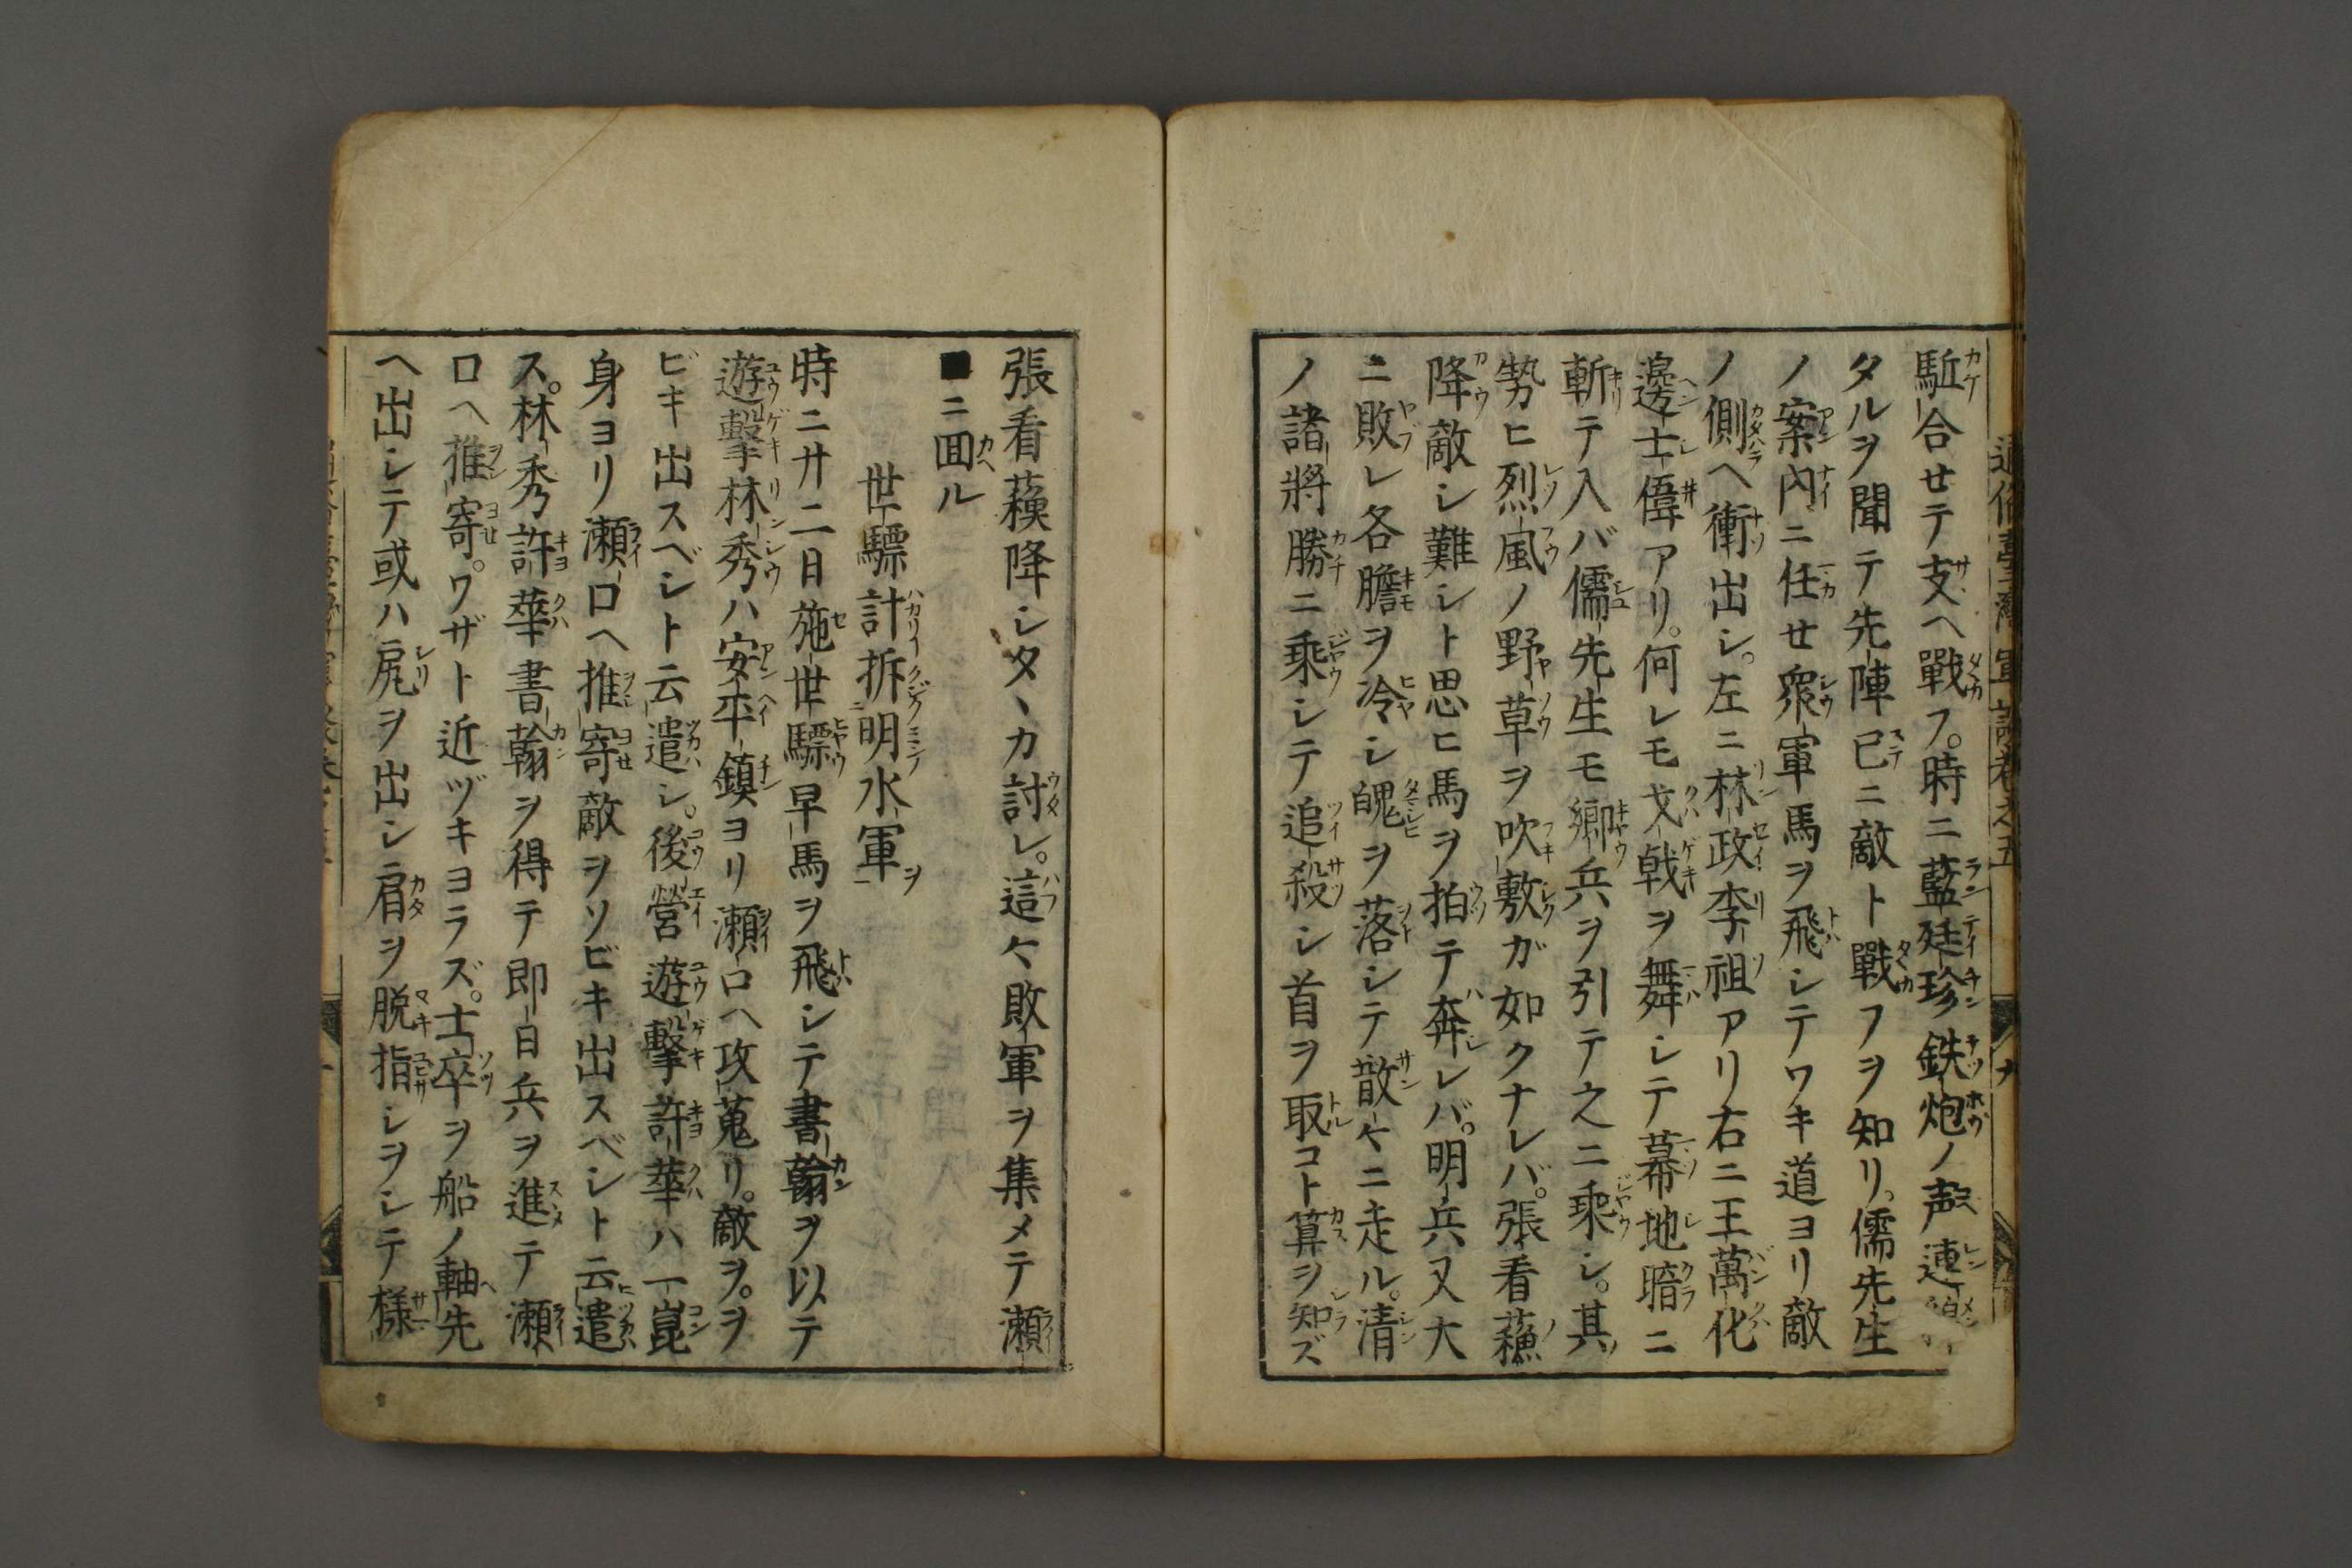 駈合セテ支ヘ戰フ。時ニ藍廷珍鉄炮ノ声連
タルヲ聞テ先陣已ニ敵ト戰フヲ知リ。儒先生
ノ案内ニ任セ衆軍馬ヲ飛シテワキ道ヨリ敵
ノ側ヘ衝出シ。左ニ林政李祖アリ右ニ王萬化
邊士偉アリ。何レモ戈戟ヲ舞シテ幕地暗ニ
斬テ入バ儒先生モ郷兵ヲ引テ之ニ乘シ。其
勢ヒ烈風ノ野草ヲ吹敷ガ如クナレバ。張看蘓
降敵シ難シト思ヒ馬ヲ拍テ奔レバ。明兵又大
ニ敗レ各膽ヲ冷シ魄ヲ落シテ散々ニ走ル。清
ノ諸將勝ニ乘シテ追殺シ首ヲ取コト算ヲ知ズ
張看蘓降シタヽカ討レ。這々敗軍ヲ集メテ瀬
■ニ囬ル
世驃計拆明水軍
時ニ廾二日施世驃早馬ヲ飛シテ書翰ヲ以テ
遊擊林秀ハ安平鎮ヨリ瀬口ヘ攻蒐リ。敵ヲ。ヲ
ビキ出スベシト云遣シ。後營遊擊許華ハ一崑
身ヨリ瀬口ヘ推寄敵ヲソビキ出スベシト云遣
ス。林秀許華書翰ヲ得テ即日兵ヲ進テ瀬
口ヘ推寄。ワザト近ヅキヨラズ。士卒ヲ船ノ軸先
ヘ出シテ或ハ尻ヲ出シ肩ヲ脱指シヲシテ様